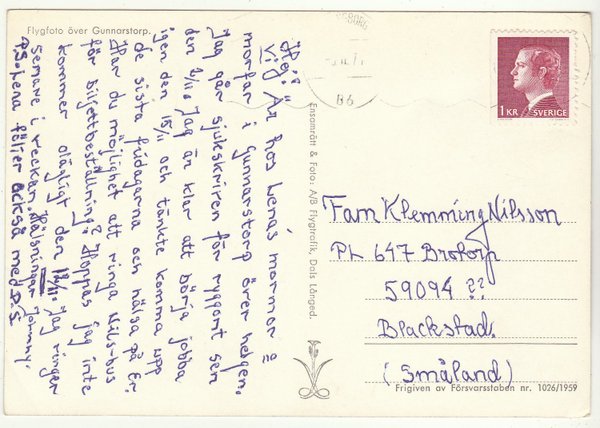 Flygfoto över Gunnarstorp.
Hej!
Vi är hos Lenas mormor o
morfar i Gunnarstorp över helgen.
Jag går sjukskriven för ryggont sen
den 2/11. Jag är klar att börja jobba
igen den 15/11 och tänkte komma upp
de sista fridagarna och hälsa på Er.
Har du möjlighet att ringa Nils-bus
för biljettbeställning? Hoppas jag inte
kommer olägligt den 12/11. Jag ringer
senare i veckan. Hälsningar Johnny.
P.S. Lena följer också med D.S.
Ensamrätt & Foto: A/B Flygtrafik, Dals Långed.
B6
1 KR SVERIGE
Fam Klemming Nilsson
PL 647 Brotorp
59094 ??
Blackstad.
(Småland)
Frigiven av Försvarsstaben nr. 1026/1959